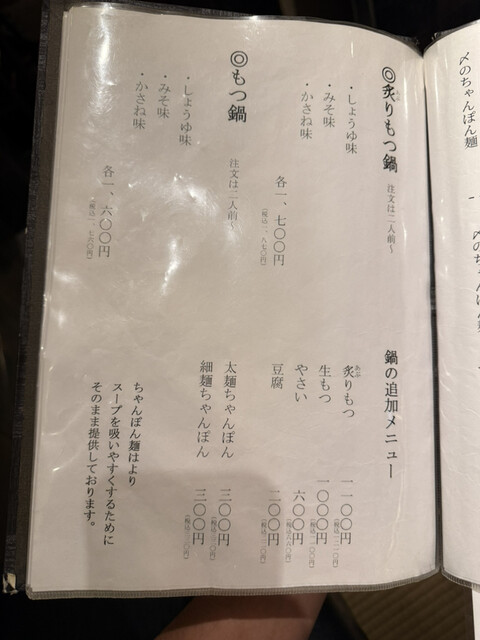 〆のちゃんぽん麺
◎炙りもつ鍋 注文は二人前〜
・しょうゆ味
・みそ味
・かさね味
各一、七〇〇円
(税込一、八七〇円)
◎もつ鍋
注文は二人前〜
・しょうゆ味
・みそ味
・かさね味
各一、六〇〇円
(税込一、七六〇円)
鍋の追加メニュー
炙りもつ 一一〇〇円
(税込一二一〇円)
生もつ 一〇〇〇円
(税込一一〇〇円)
やさい 六〇〇円
(税込六六〇円)
豆腐 二〇〇円
(税込二二〇円)
太麺ちゃんぽん 三〇〇円
(税込三三〇円)
細麺ちゃんぽん 三〇〇円
(税込三三〇円)
ちゃんぽん麺はより
スープを吸いやすくするために
そのまま提供しております。